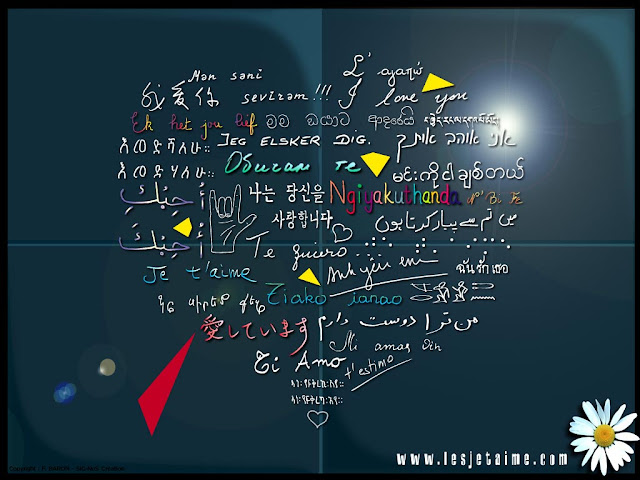 Mən səni Σ' αγαπώ
我愛你 sevirəm!!! I love you
Ek het jou lief මම ඔයාට ආදරෙයි
እወድሻለሁ። JEG ELSKER DIG. אני אוהב אותך
እወድሃለሁ። Obuzam te မင်းကိုငါချစ်တယ်
أُحِبُّكِ 나는 당신을 Ngiyakuthanda
사랑합니다 میں تم سے پیار کرتا ہوں
أُحِبُّكَ Te quiero
Je t'aime Anh yêu em ฉันรักเธอ
Tiako ianao
愛しています من ترا دوست دارم
Mi amas vin
Ti Amo t'estimo
www.lesjetaime.com